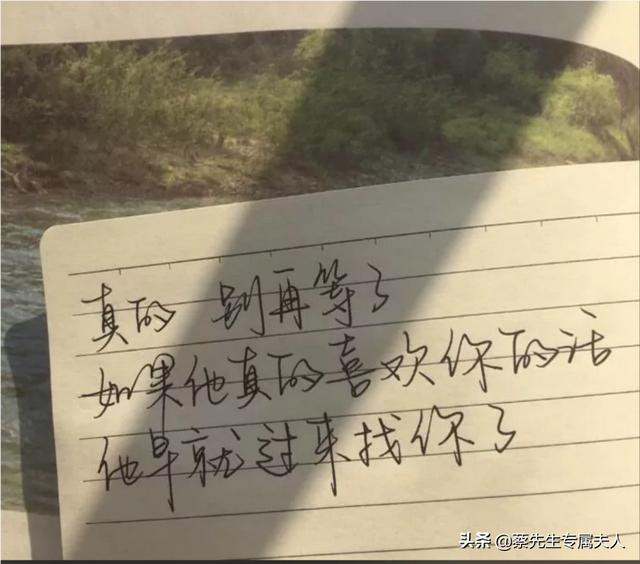 真的 别再等了
如果他真的喜欢你的话
他早就过来找你了
头条 @蔡先生专属夫人